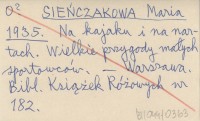 O² SIEŃCZAKOWA Maria
1935. Na kajaku i na nar-
tach. Wielkie przygody małych
sportowców. Warszawa.
Bibl. Książek Różowych nr
182.